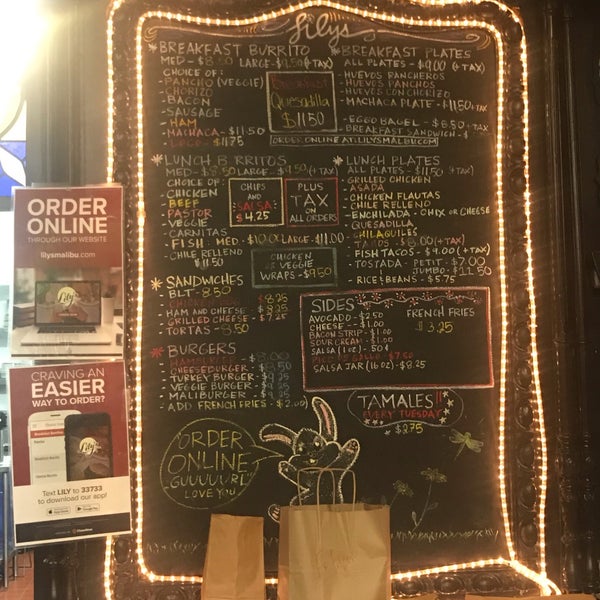 Lilys
*BREAKFAST BURRITO
MED - $8.50 LARGE - $9.50 (+TAX)
CHOICE OF:
- PANCHO (VEGGIE)
- CHORIZO
- BACON
- SAUSAGE
- HAM
- MACHACA - $11.50
- $11.75
BREAKFAST
QUESADILLA
$11.50
*BREAKFAST PLATES
ALL PLATES - $9.00 (+TAX)
- HUEVOS RANCHEROS
- HUEVOS PANCHOS
- HUEVOS CON CHORIZO
- MACHACA PLATE - $11.50 + TAX
- EGGO BAGEL - $8.50 + TAX
- BREAKFAST SANDWICH - $
ORDER ONLINE AT: LILYSMALIBU.COM
*LUNCH B RRITOS
MED - $8.50 LARGE - $9.50 (+TAX)
CHOICE OF:
- CHICKEN
- BEEF
- PASTOR
- VEGGIE
- CARNITAS
- FISH - MED - $10.00 LARGE - $11.00
- CHILE RELLENO
$11.50
CHIPS
AND
SALSA
$4.25
PLUS
TAX
ON
ALL ORDERS
CHICKEN
OR VEGGIE
WRAPS - $9.50
*LUNCH PLATES
ALL PLATES - $11.50 (+TAX)
- GRILLED CHICKEN
- ASADA
- CHICKEN FLAUTAS
- CHILE RELLENO
- ENCHILADA - CHIX OR CHEESE
- QUESADILLA
- CHILAQUILES
- TACOS - $8.00 (+TAX)
- FISH TACOS - $9.00 (+TAX)
- TOSTADA - PETIT - $7.00
JUMBO - $11.50
- RICE & BEANS - $5.75
*SANDWICHES
- BLT - 8.50
- $8.25
- HAM AND CHEESE - $8.25
- GRILLED CHEESE - $7.25
- TORTAS - 8.50
*BURGERS
- HAMBURGER - $8.00
- CHEESEBURGER - $8.50
- TURKEY BURGER - $9.25
- VEGGIE BURGER - $9.25
- MALIBURGER - $9.25
- ADD FRENCH FRIES - $2.00
SIDES
AVOCADO - $2.50
CHEESE - $1.00
BACON STRIP - $1.00
SOUR CREAM - $1.00
SALSA (1 OZ) - 50¢
PICO DE GALLO - $7.50
SALSA JAR (16 OZ) - $8.25
FRENCH FRIES
$3.25
TAMALES!!
EVERY TUESDAY
$2.75
ORDER
ONLINE
GUUUUURL
LOVE YOU
ORDER
ONLINE
THROUGH OUR WEBSITE
lilysmalibu.com
Lily's
CRAVING AN
EASIER
WAY TO ORDER?
Lily's
Text LILY to 33733
to download our app!